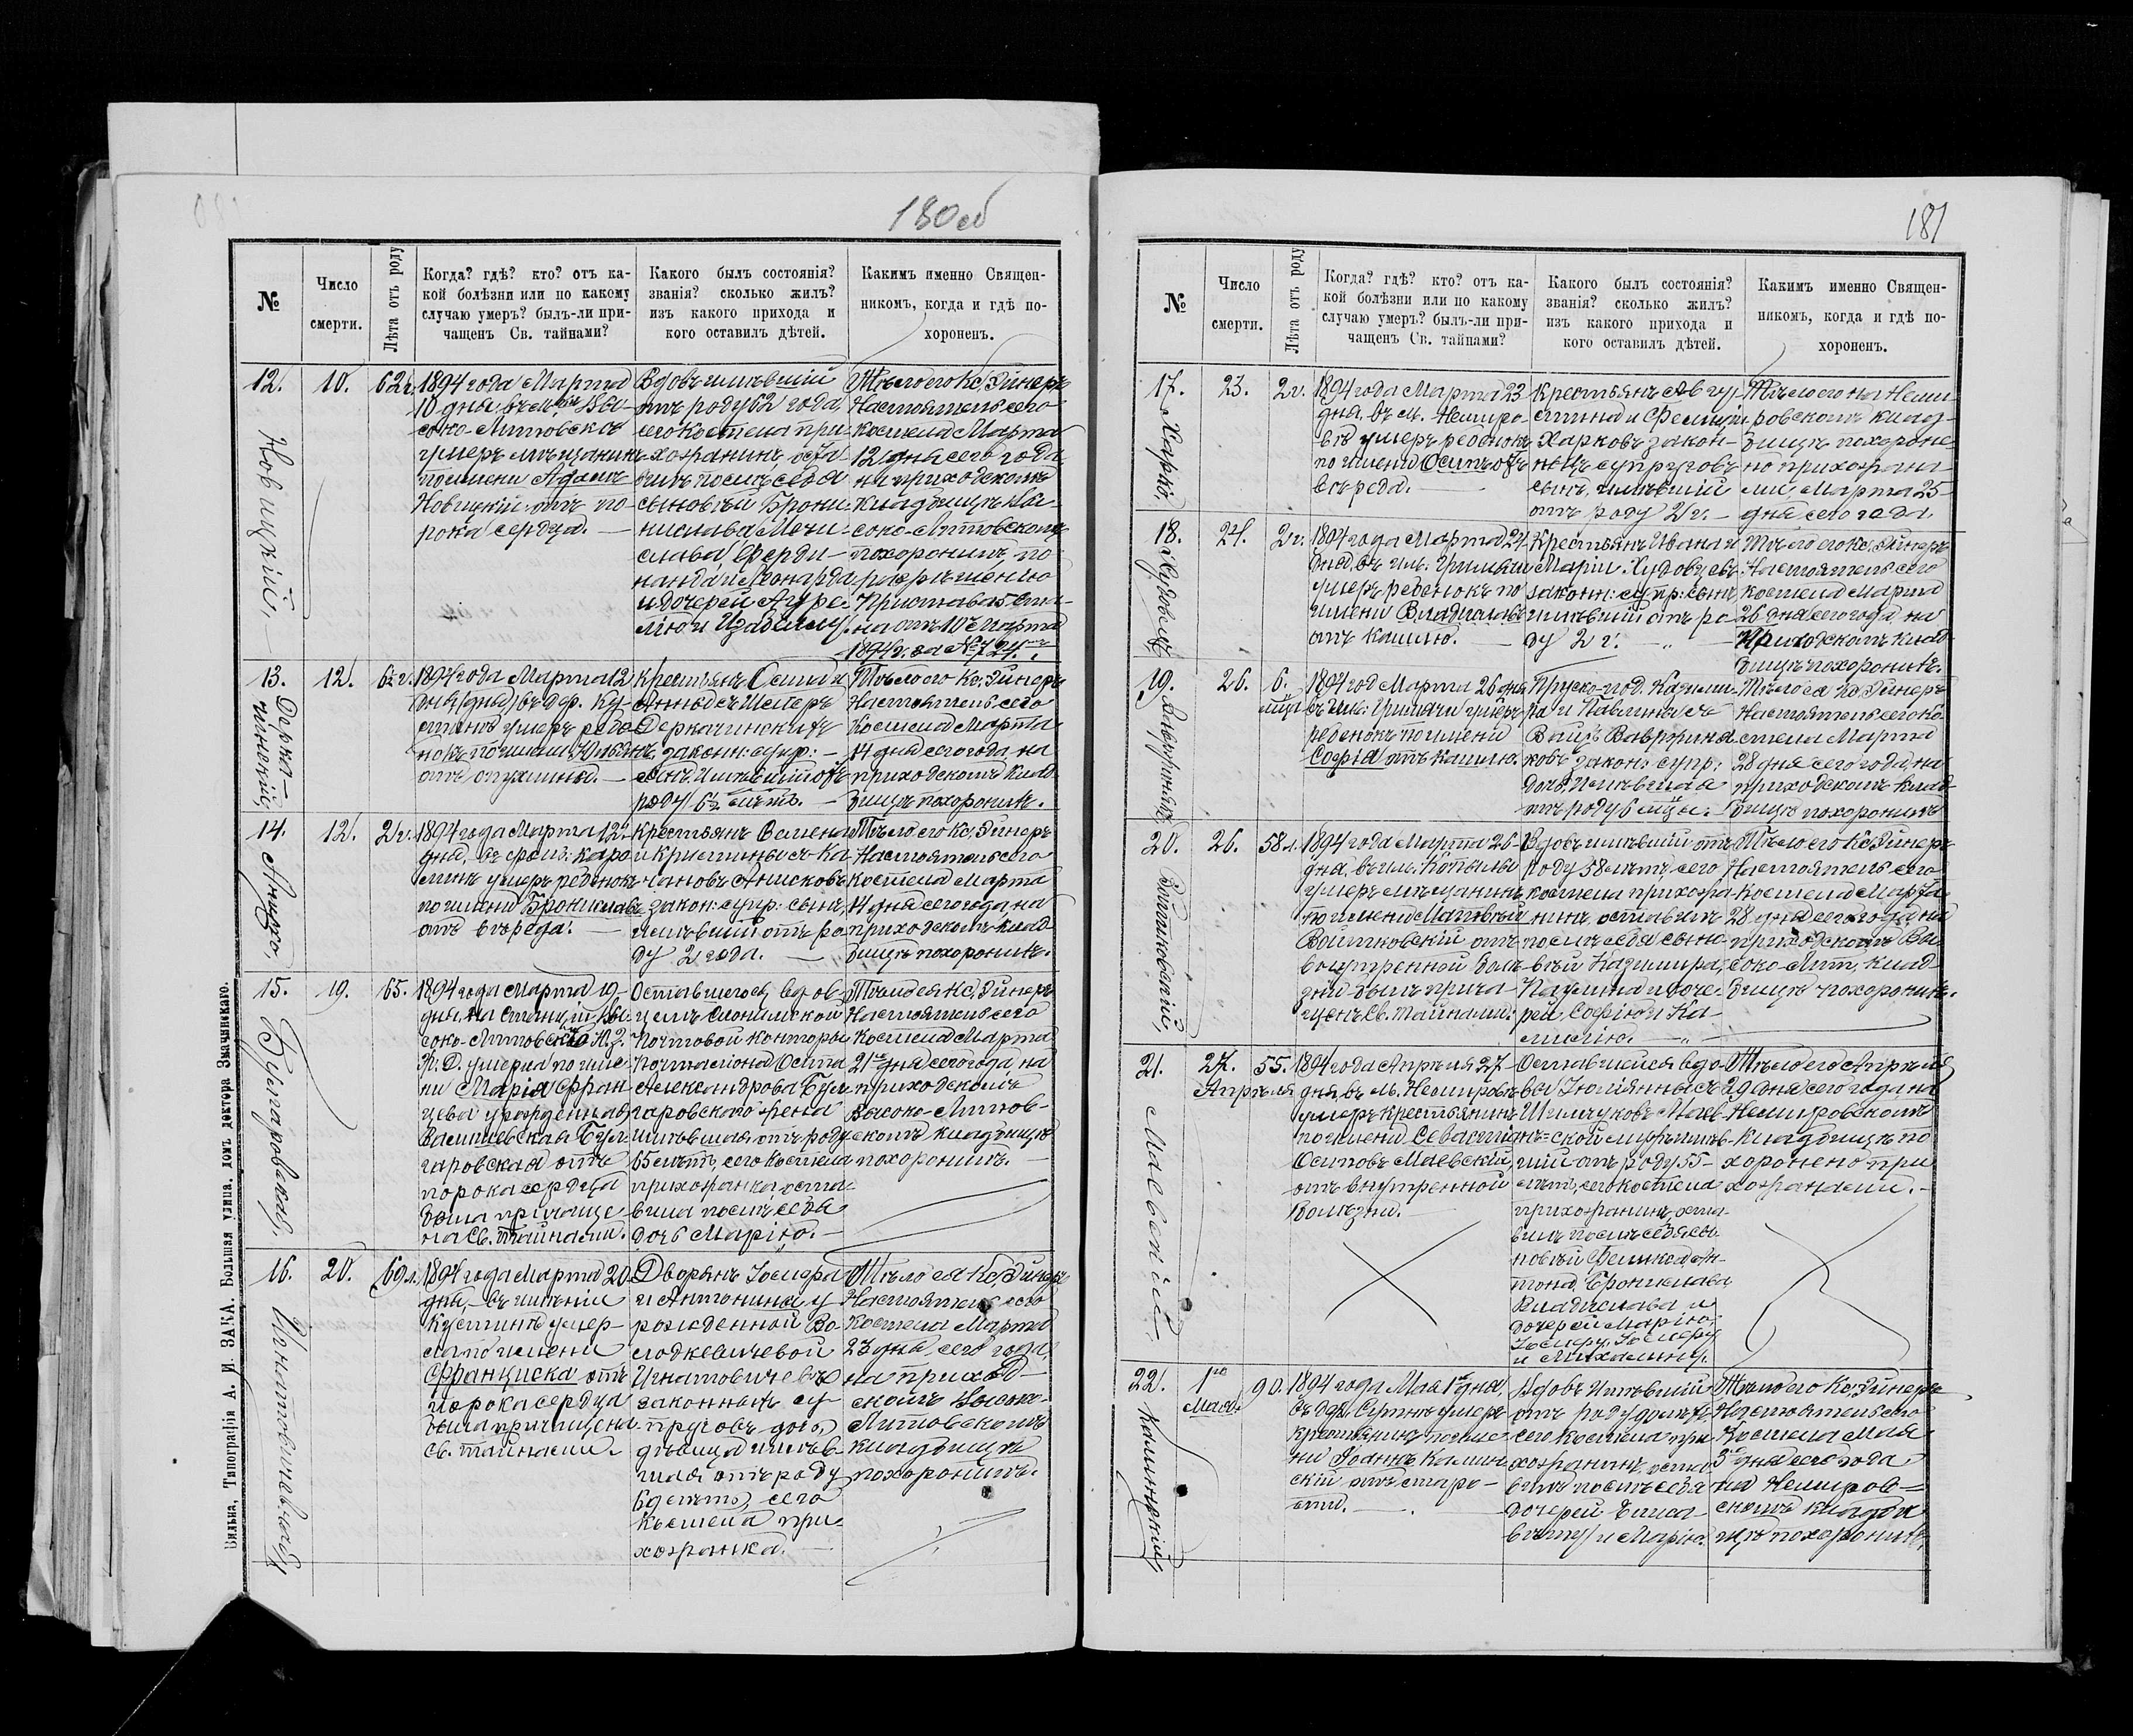 180 об
№
Число
смерти.
Лѣта отъ роду
Когда? гдѣ? кто? отъ ка-
кой болѣзни или по какому
случаю умеръ? былъ-ли при-
чащенъ Св. тайнами?
Какого былъ состоянія?
званія? сколько жилъ?
изъ какого прихода и
кого оставилъ дѣтей.
Какимъ именно Священ-
никомъ, когда и гдѣ по-
хороненъ.
12.
Новицкій.
10.
62 г.
1894 года Марта
10 дня, въ м. Высо-
ко-Литовскѣ
умеръ мѣщанинъ
по имени Адамъ
Новицкій отъ по-
рока сердца.
Вдовъ имѣвшій
отъ роду 62 года,
сего костела при-
хожанинъ, оста-
вилъ послѣ себя
сыновей Брони-
слава, Мечи-
слава, Ферди-
нанда и Леонарда
и дочерей Ауре-
лію и Изабеллу.
Тѣло его Кс. Эйнеръ
Настоятель сего
костела Марта
12 дня сего года
на приходскомъ
Кладбищѣ Вы-
соко-Литовскомъ
похоронилъ, по
разрѣшенію
Пристава 5 Ста-
на отъ 10 Марта
1894 г. за № 724.
13.
Дерка-
чинскій,
12.
6½ г.
1894 года Марта 12
дня, въ дер. Ку-
стинѣ умеръ ребе-
нокъ по имени Юльянъ
отъ опухлины.
Крестьянъ Осипа и
Анны съ Шетеръ
Деркачинскихъ
законн: супр: —
сынъ, имѣвшій отъ
роду 6½ лѣтъ. —
Тѣло его Кс. Эйнеръ
Настоятель сего
Костела Марта
14 дня сего года на
приходскомъ Клад-
бищѣ похоронилъ.
14.
Анисько,
12.
2 г.
1894 года Марта 12
дня, въ фольв: Каро-
линѣ умеръ ребенокъ
по имени Брониславъ
отъ вереда. —
Крестьянъ Семена
и Кристины съ Ка-
чановъ Анисковъ
закон: супр: сынъ,
имѣвшій отъ ро-
ду 2 года. —
Тѣло его Кс. Эйнеръ
Настоятель сего
костела Марта
14 дня сего года, на
приходскомъ клад-
бищѣ похоронилъ.
15.
Булгаровская,
19.
65.
1894 года Марта 19
дня, на станціи Вы-
соко-Литовскѣ Ю. З.
Ж. Д. умерла по име-
ни Марія Фран-
цева урожденная
Василевская Бул-
гаровская отъ
порока сердца
была причаще-
на Св. Тайнами.
Оставшегося вдов-
цемъ Слонимской
Почтовой Конторы
Почталіона Осипа
Александрова Бул-
гаровскаго жена
имѣвшая отъ роду
65 лѣтъ, сего костела
прихожанка, оста-
вила послѣ себя
дочь Марію. —
Тѣло ея Кс. Эйнеръ
Настоятель сего
Костела Марта
21 дня сего года, на
приходскомъ
Высоко-Литов-
скомъ кладбищѣ
похоронилъ. —
16.
Игнатовичевна,
20.
69 л.
1894 года Марта 20
дня, въ имѣніи
Кустинѣ умер-
ла по имени
Франциска отъ
порока сердца
была причащена
Св. тайнами.
Дворянъ Іосифа
и Антонины у-
рожденной Во-
лодкевичевой
Игнатовичевъ
законныхъ су-
пруговъ дочь,
дѣвица имѣв-
шая отъ роду
69 лѣтъ, сего
Костела при-
хожанка. —
Тѣло ея Кс. Эйнеръ
Настоятель сего
Костела Марта
23 дня сего года,
на приход-
скомъ Высоко-
Литовскомъ
кладбищѣ
похоронилъ.
Вильна, Типографія А. И. ЗАКА. Большая улица, домъ доктора Значинскаго.
181
№
Число
смерти.
Лѣта отъ роду
Когда? гдѣ? кто? отъ ка-
кой болѣзни или по какому
случаю умеръ? былъ-ли при-
чащенъ Св. тайнами?
Какого былъ состоянія?
званія? сколько жилъ?
изъ какого прихода и
кого оставилъ дѣтей.
Какимъ именно Священ-
никомъ, когда и гдѣ по-
хороненъ.
17.
Харко,
23.
2 г.
1894 года Марта 23
дня, въ м. Немиро-
вѣ умеръ ребенокъ
по имени Осипъ отъ
вереда. —
Крестьянъ Авгу-
стина и Фелиціи
Харковъ закон-
ныхъ супруговъ
сынъ, имѣвшій
отъ роду 2 г. —
Тѣло его на Неми-
ровскомъ клад-
бищѣ похороне-
но прихожана-
ми, Марта 25
дня сего года.
18.
Худовецъ,
24.
2 г.
1894 года Марта 24
дня, въ им. Гримячи
умеръ ребенокъ по
имени Владиславъ
отъ кашлю. —
Крестьянъ Ивана и
Маріи Худовцевъ
законн: супр: сынъ,
имѣвшій отъ ро-
ду 2 г. —
Тѣло его Кс. Эйнеръ
Настоятель сего
костела Марта
26 дня сего года, на
приходскомъ клад-
бищѣ похоронилъ.
19.
26.
6.
мѣц.
1894 год. Марта 26 дня
въ им: Гримячи умеръ
ребенокъ по имени
Софія отъ кашлю.
Прусско-под. Казими-
ра и Павлины съ
законн: супр:
дочь, имѣвшая
отъ роду 6 мѣц: —
Тѣло ея Кс. Эйнеръ
Настоятель сего ко-
стела Марта
28 дня сего года, на
приходскомъ клад-
бищѣ похоронилъ.
20.
Войтковскій,
26.
58 л.
1894 года Марта 26
дня, въ им. Копылы
умеръ мѣщанинъ
по имени Матвѣй
Войтковскій отъ
внутренной болѣ-
зни былъ прича-
щенъ Св. Тайнами.
Вдовъ имѣвшій отъ
роду 58 лѣтъ, сего
костела прихожа-
нинъ, оставилъ
послѣ себя сыно-
вей Казимира,
и доче-
рей Софію и Ка-
милію. —
Тѣло его Кс. Эйнеръ
Настоятель сего
Костела Марта
28 дня сего года, на
приходскомъ Вы-
соко-Лит. клад-
бищѣ похоронилъ.
21.
Маевскій,
27.
Апрѣля
55.
1894 года Апрѣля 27
дня, въ м. Немировѣ
умеръ крестьянинъ
по имени Севастіянъ
Осиповъ Маевскій
отъ внутренной
болѣзни. —
Оставшейся вдо-
вы Юліянны съ
Шимчуковъ Маев-
ской мужъ имѣв-
шій отъ роду 55
лѣтъ, сего костела
прихожанинъ, оста-
вилъ послѣ себя сы-
новей Феликса, Ан-
тона, Бронислава
Владислава и
дочерей Марію,
Іосифу
и Михалину.
Тѣло его Апрѣля
29 дня сего года на
Немировскомъ
Кладбищѣ по-
хоронено при-
хожанами. —
22.
Калинскій,
1го
Мая.
90.
1894 года Мая 1го дня,
въ дер. умеръ
крестьянинъ по име-
ни Іоаннъ Калин-
скій отъ старо-
сти. —
Вдовъ имѣвшій
отъ роду 90 лѣтъ
сего костела при-
хожанинъ, оста-
вилъ послѣ себя
дочерей Елиза-
вету и Марію.
Тѣло его Кс. Эйнеръ
Настоятель сего
Костела Мая
3 дня сего года
на Немиров-
скомъ кладби-
щѣ похоронилъ.